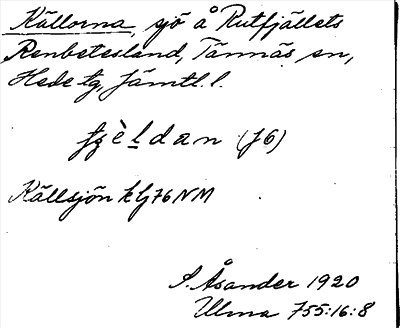 Källorna, sjö å Rutfjällets
Renbetesland, Tännäs sn,
Hede tg, Jämtl. l.
ʃʒèldan (J6)
Källsjön k lj 76 NM
S. Åsander 1920
Ulma 755:16:8